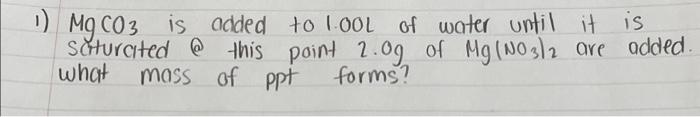 1) MgCO3 is added to 1.00L of water until it is
saturated @ this point 2.0g of Mg(NO3)2 are added.
what mass of ppt forms?